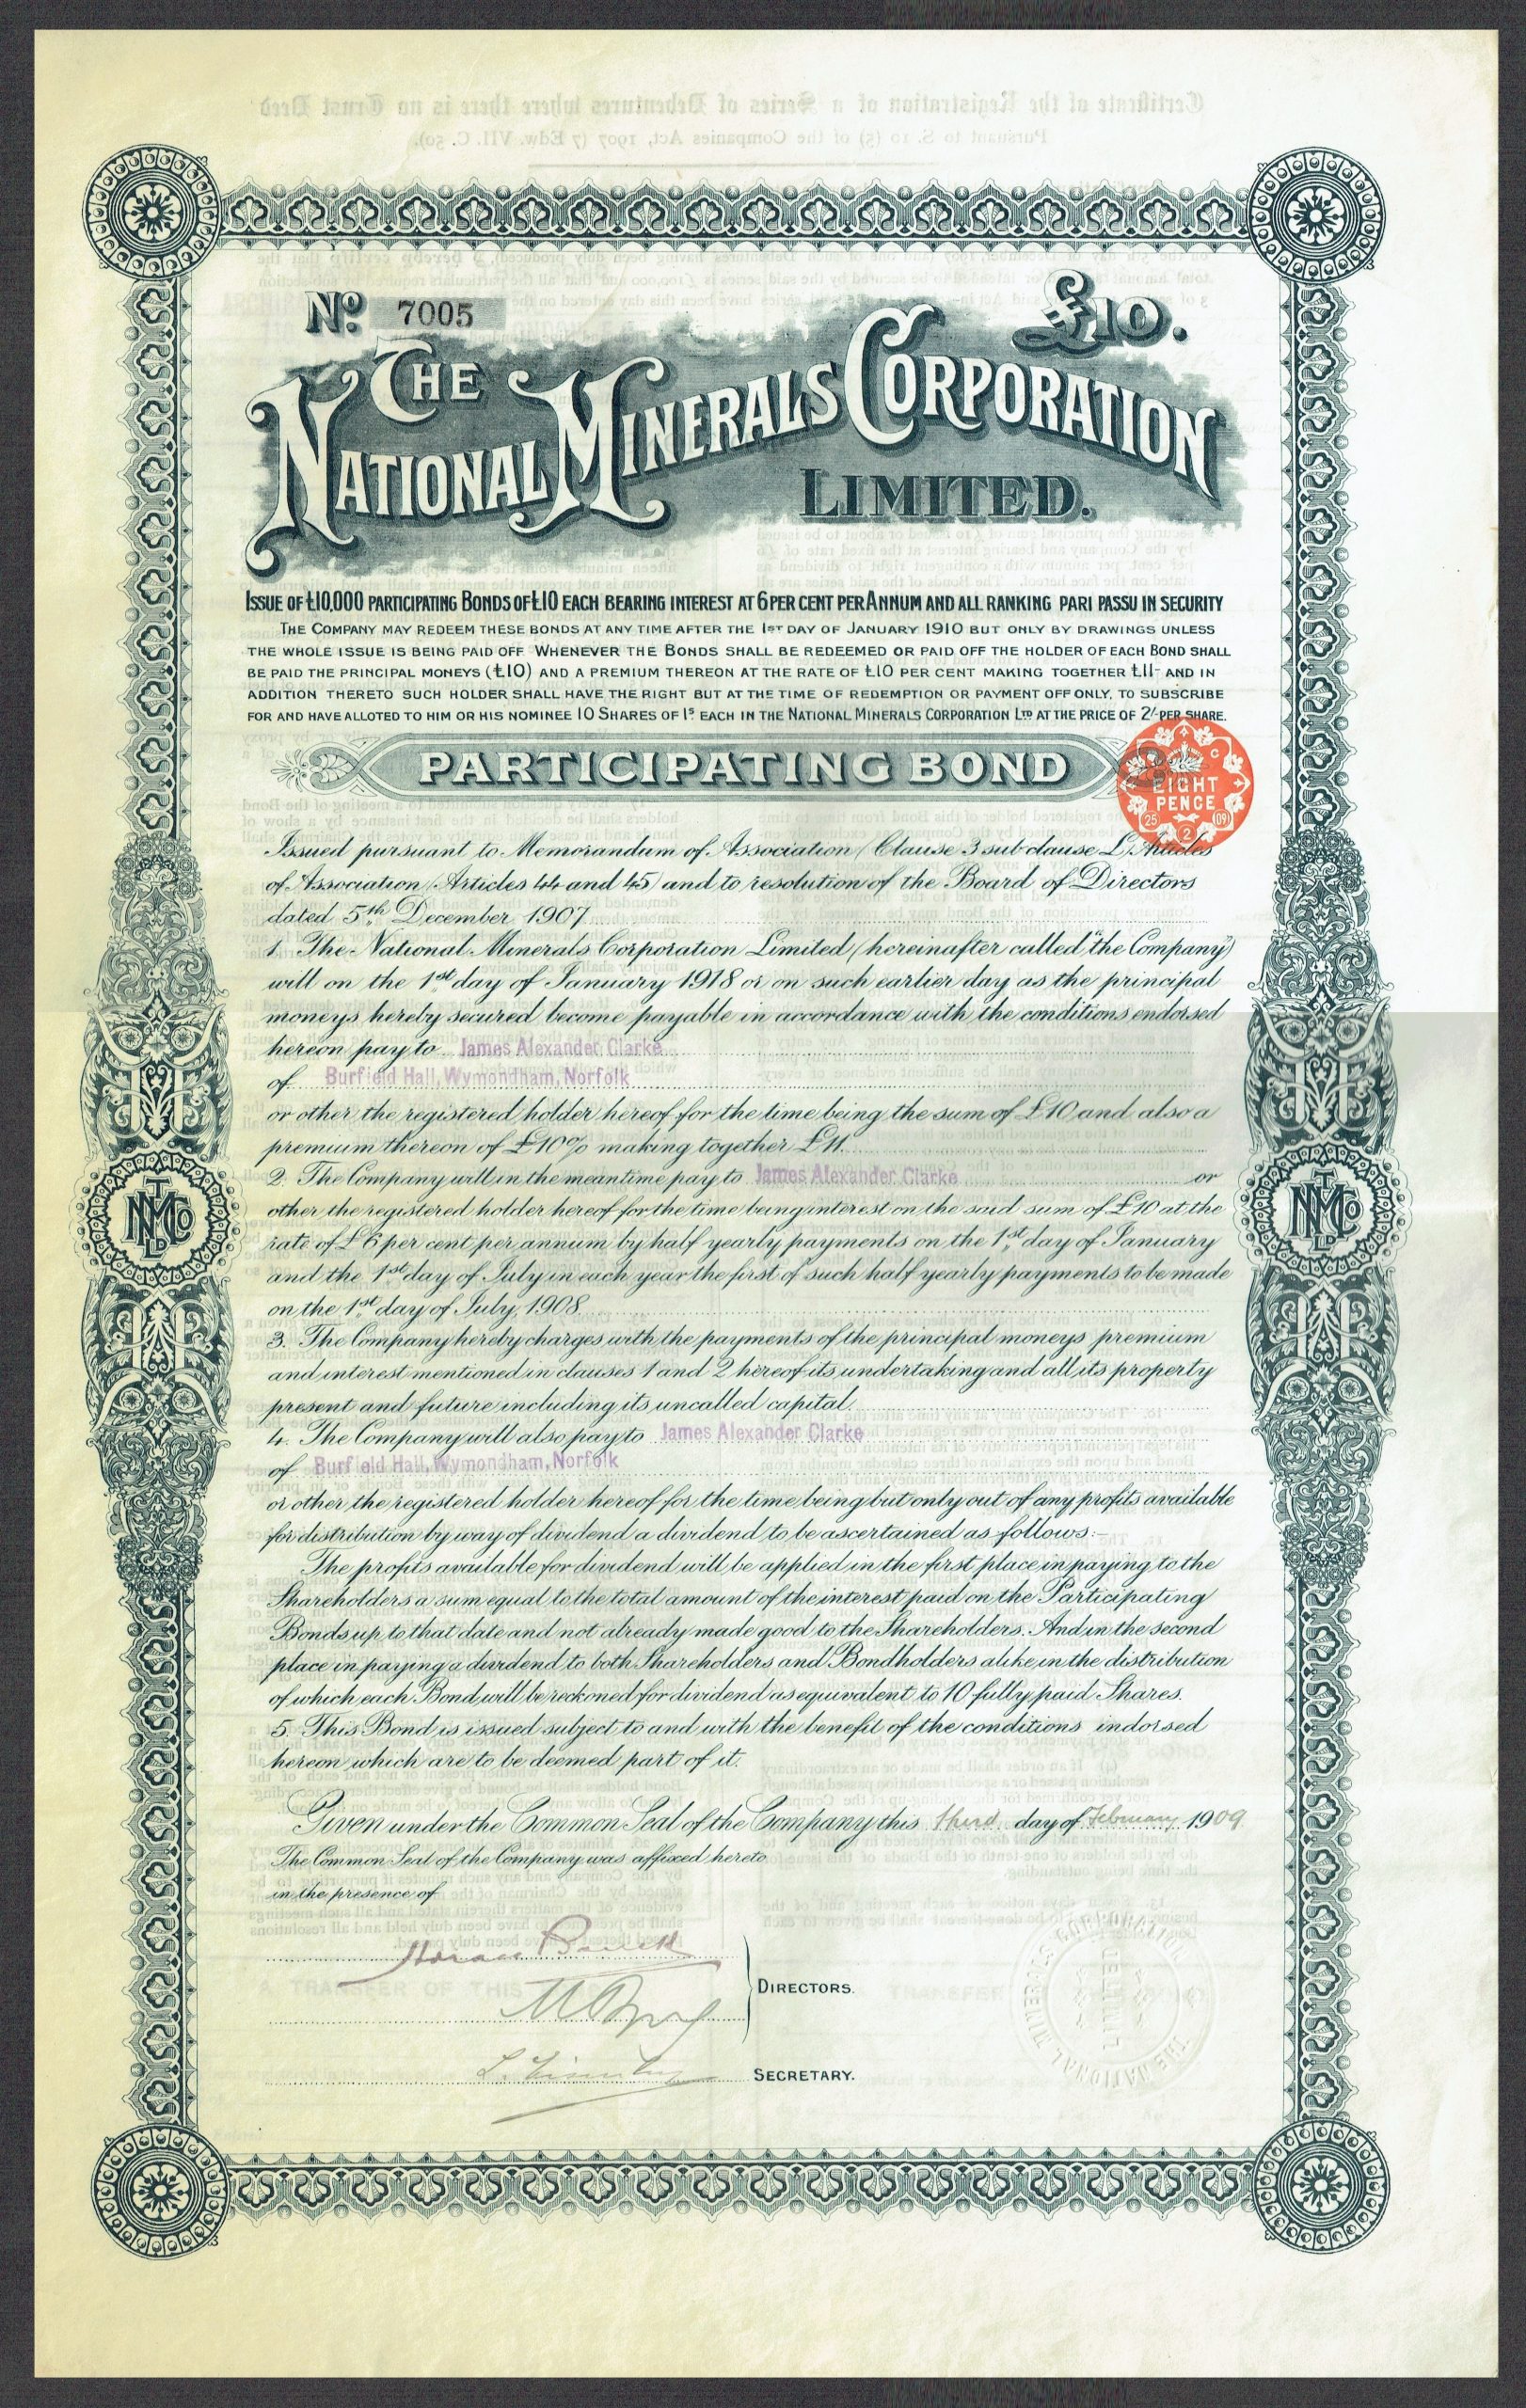 No. 7005
£10.
THE
NATIONAL MINERALS CORPORATION
LIMITED.
ISSUE OF £10,000 PARTICIPATING BONDS OF £10 EACH BEARING INTEREST AT 6 PER CENT PER ANNUM AND ALL RANKING PARI PASSU IN SECURITY
THE COMPANY MAY REDEEM THESE BONDS AT ANY TIME AFTER THE 1ST DAY OF JANUARY 1910 BUT ONLY BY DRAWINGS UNLESS
THE WHOLE ISSUE IS BEING PAID OFF WHENEVER THE BONDS SHALL BE REDEEMED OR PAID OFF THE HOLDER OF EACH BOND SHALL
BE PAID THE PRINCIPAL MONEYS (£10) AND A PREMIUM THEREON AT THE RATE OF £10 PER CENT MAKING TOGETHER £11- AND IN
ADDITION THERETO SUCH HOLDER SHALL HAVE THE RIGHT BUT AT THE TIME OF REDEMPTION OR PAYMENT OFF ONLY, TO SUBSCRIBE
FOR AND HAVE ALLOTED TO HIM OR HIS NOMINEE 10 SHARES OF 1S EACH IN THE NATIONAL MINERALS CORPORATION LTD AT THE PRICE OF 2/- PER SHARE.
PARTICIPATING BOND
C
EIGHT
PENCE
25 2 09
Issued pursuant to Memorandum of Association (Clause 3 sub clause L) Articles
of Association (Articles 44 and 45) and to resolution of the Board of Directors
dated 5th December 1907
1. The National Minerals Corporation Limited (hereinafter called "the Company")
will on the 1st day of January 1918 or on such earlier day as the principal
moneys hereby secured become payable in accordance with the conditions endorsed
hereon pay to James Alexander Clarke
of Burfield Hall, Wymondham, Norfolk
or other the registered holder hereof for the time being the sum of £10 and also a
premium thereon of £10% making together £11.
2. The Company will in the meantime pay to James Alexander Clarke or
other the registered holder hereof for the time being interest on the said sum of £10 at the
rate of £6 per cent per annum by half yearly payments on the 1st day of January
and the 1st day of July in each year the first of such half yearly payments to be made
on the 1st day of July, 1908
3. The Company hereby charges with the payments of the principal moneys premium
and interest mentioned in clauses 1 and 2 hereof its undertaking and all its property
present and future including its uncalled capital.
4. The Company will also pay to James Alexander Clarke
of Burfield Hall, Wymondham, Norfolk
or other the registered holder hereof for the time being but only out of any profits available
for distribution by way of dividend a dividend to be ascertained as follows:-
The profits available for dividend will be applied in the first place in paying to the
Shareholders a sum equal to the total amount of the interest paid on the Participating
Bonds up to that date and not already made good to the Shareholders. And in the second
place in paying a dividend to both Shareholders and Bondholders alike in the distribution
of which each Bond will be reckoned for dividend as equivalent to 10 fully paid Shares.
5. This Bond is issued subject to and with the benefit of the conditions indorsed
hereon which are to be deemed part of it.
Given under the Common Seal of the Company this third day of February 1909
The Common Seal of the Company was affixed hereto
in the presence of
Horace
DIRECTORS.
SECRETARY.
THE NATIONAL MINERALS CORPORATION
LIMITED